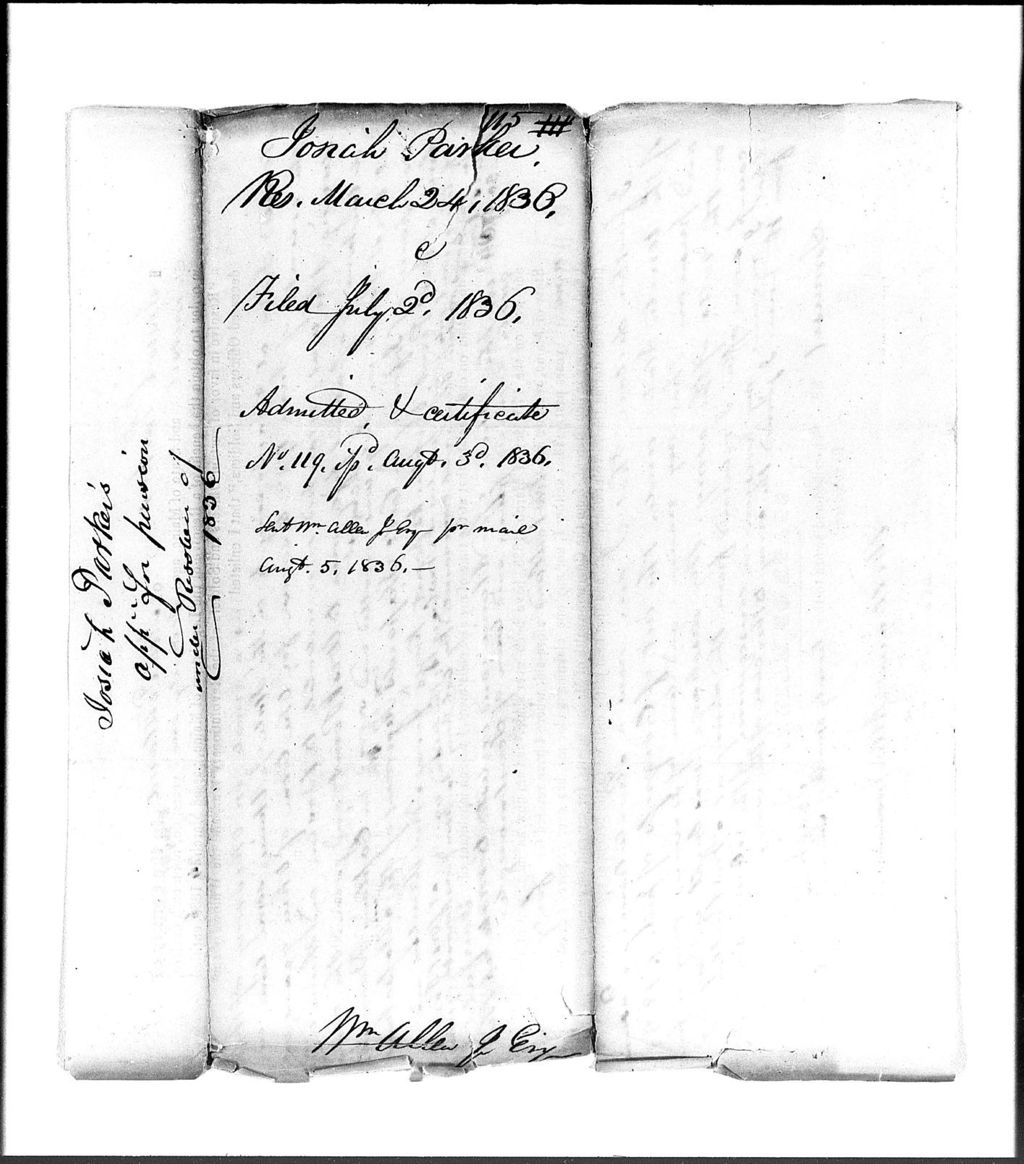 115
Josiah Parker.
Res. March 24, 1836.
Filed July 2d. 1836.
Admitted, & certificate
No. 119. Augt. 3d. 1836.
Sent Wm Allen Jr Esq pr mail
Augt. 5, 1836.—
Wm Allen Jr Esq
Josiah Parker's
appn for pension
under Resolve of
1836